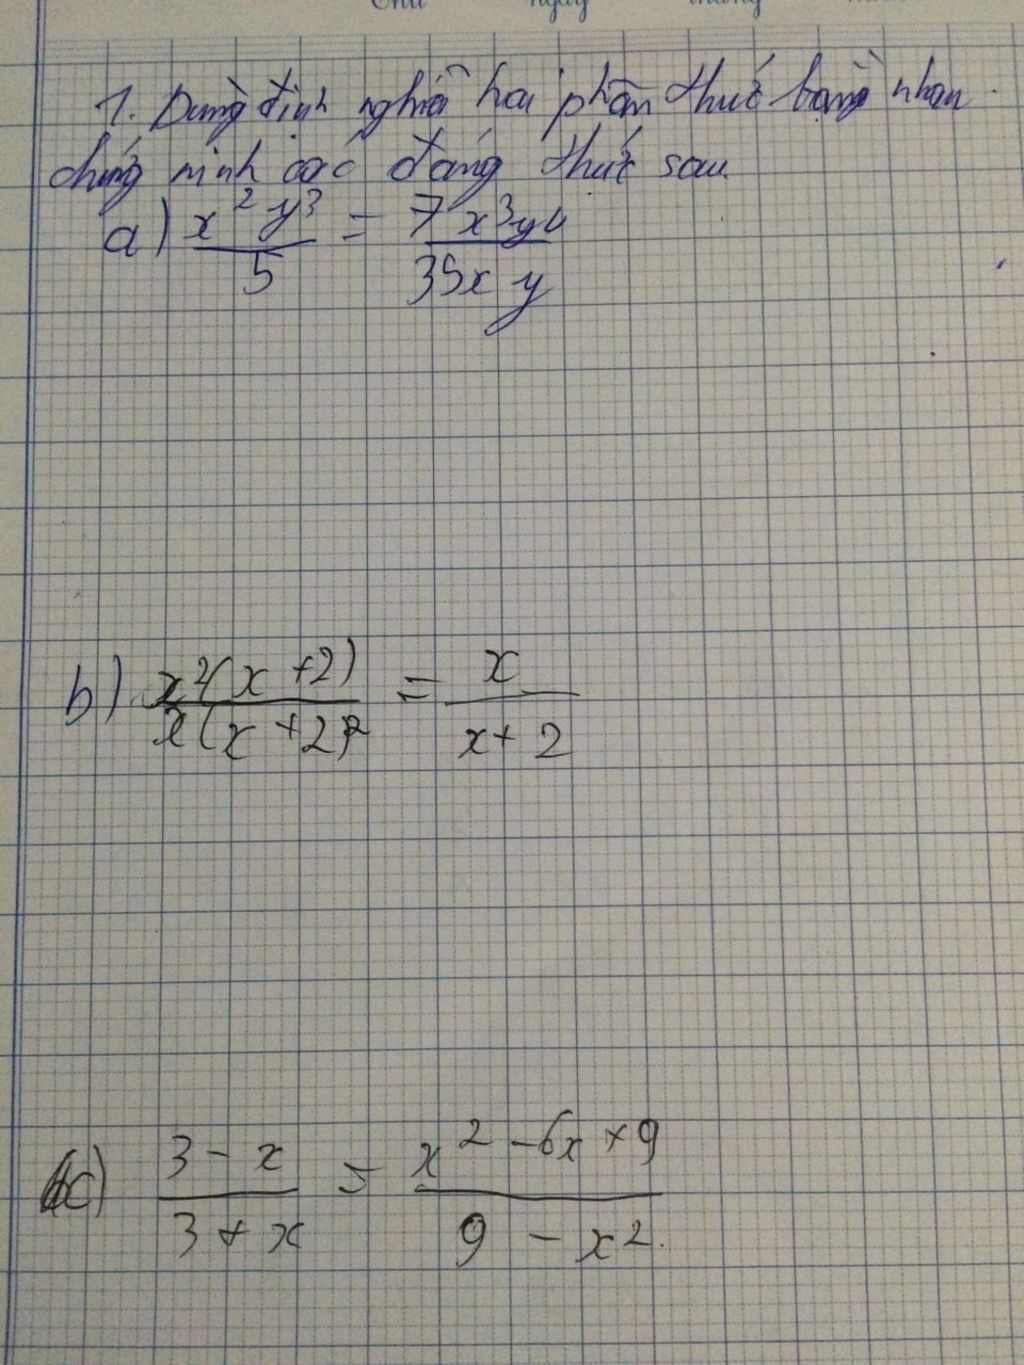 Thứ ngày tháng
1. Dùng định nghĩa hai phân thức bằng nhau
chứng minh các đẳng thức sau
a) x²y³/5 = 7x³y⁴/35xy
b) x²(x+2)/x(x+2)² = x/x+2
c) 3-x/3+x = x²-6x+9/9-x².